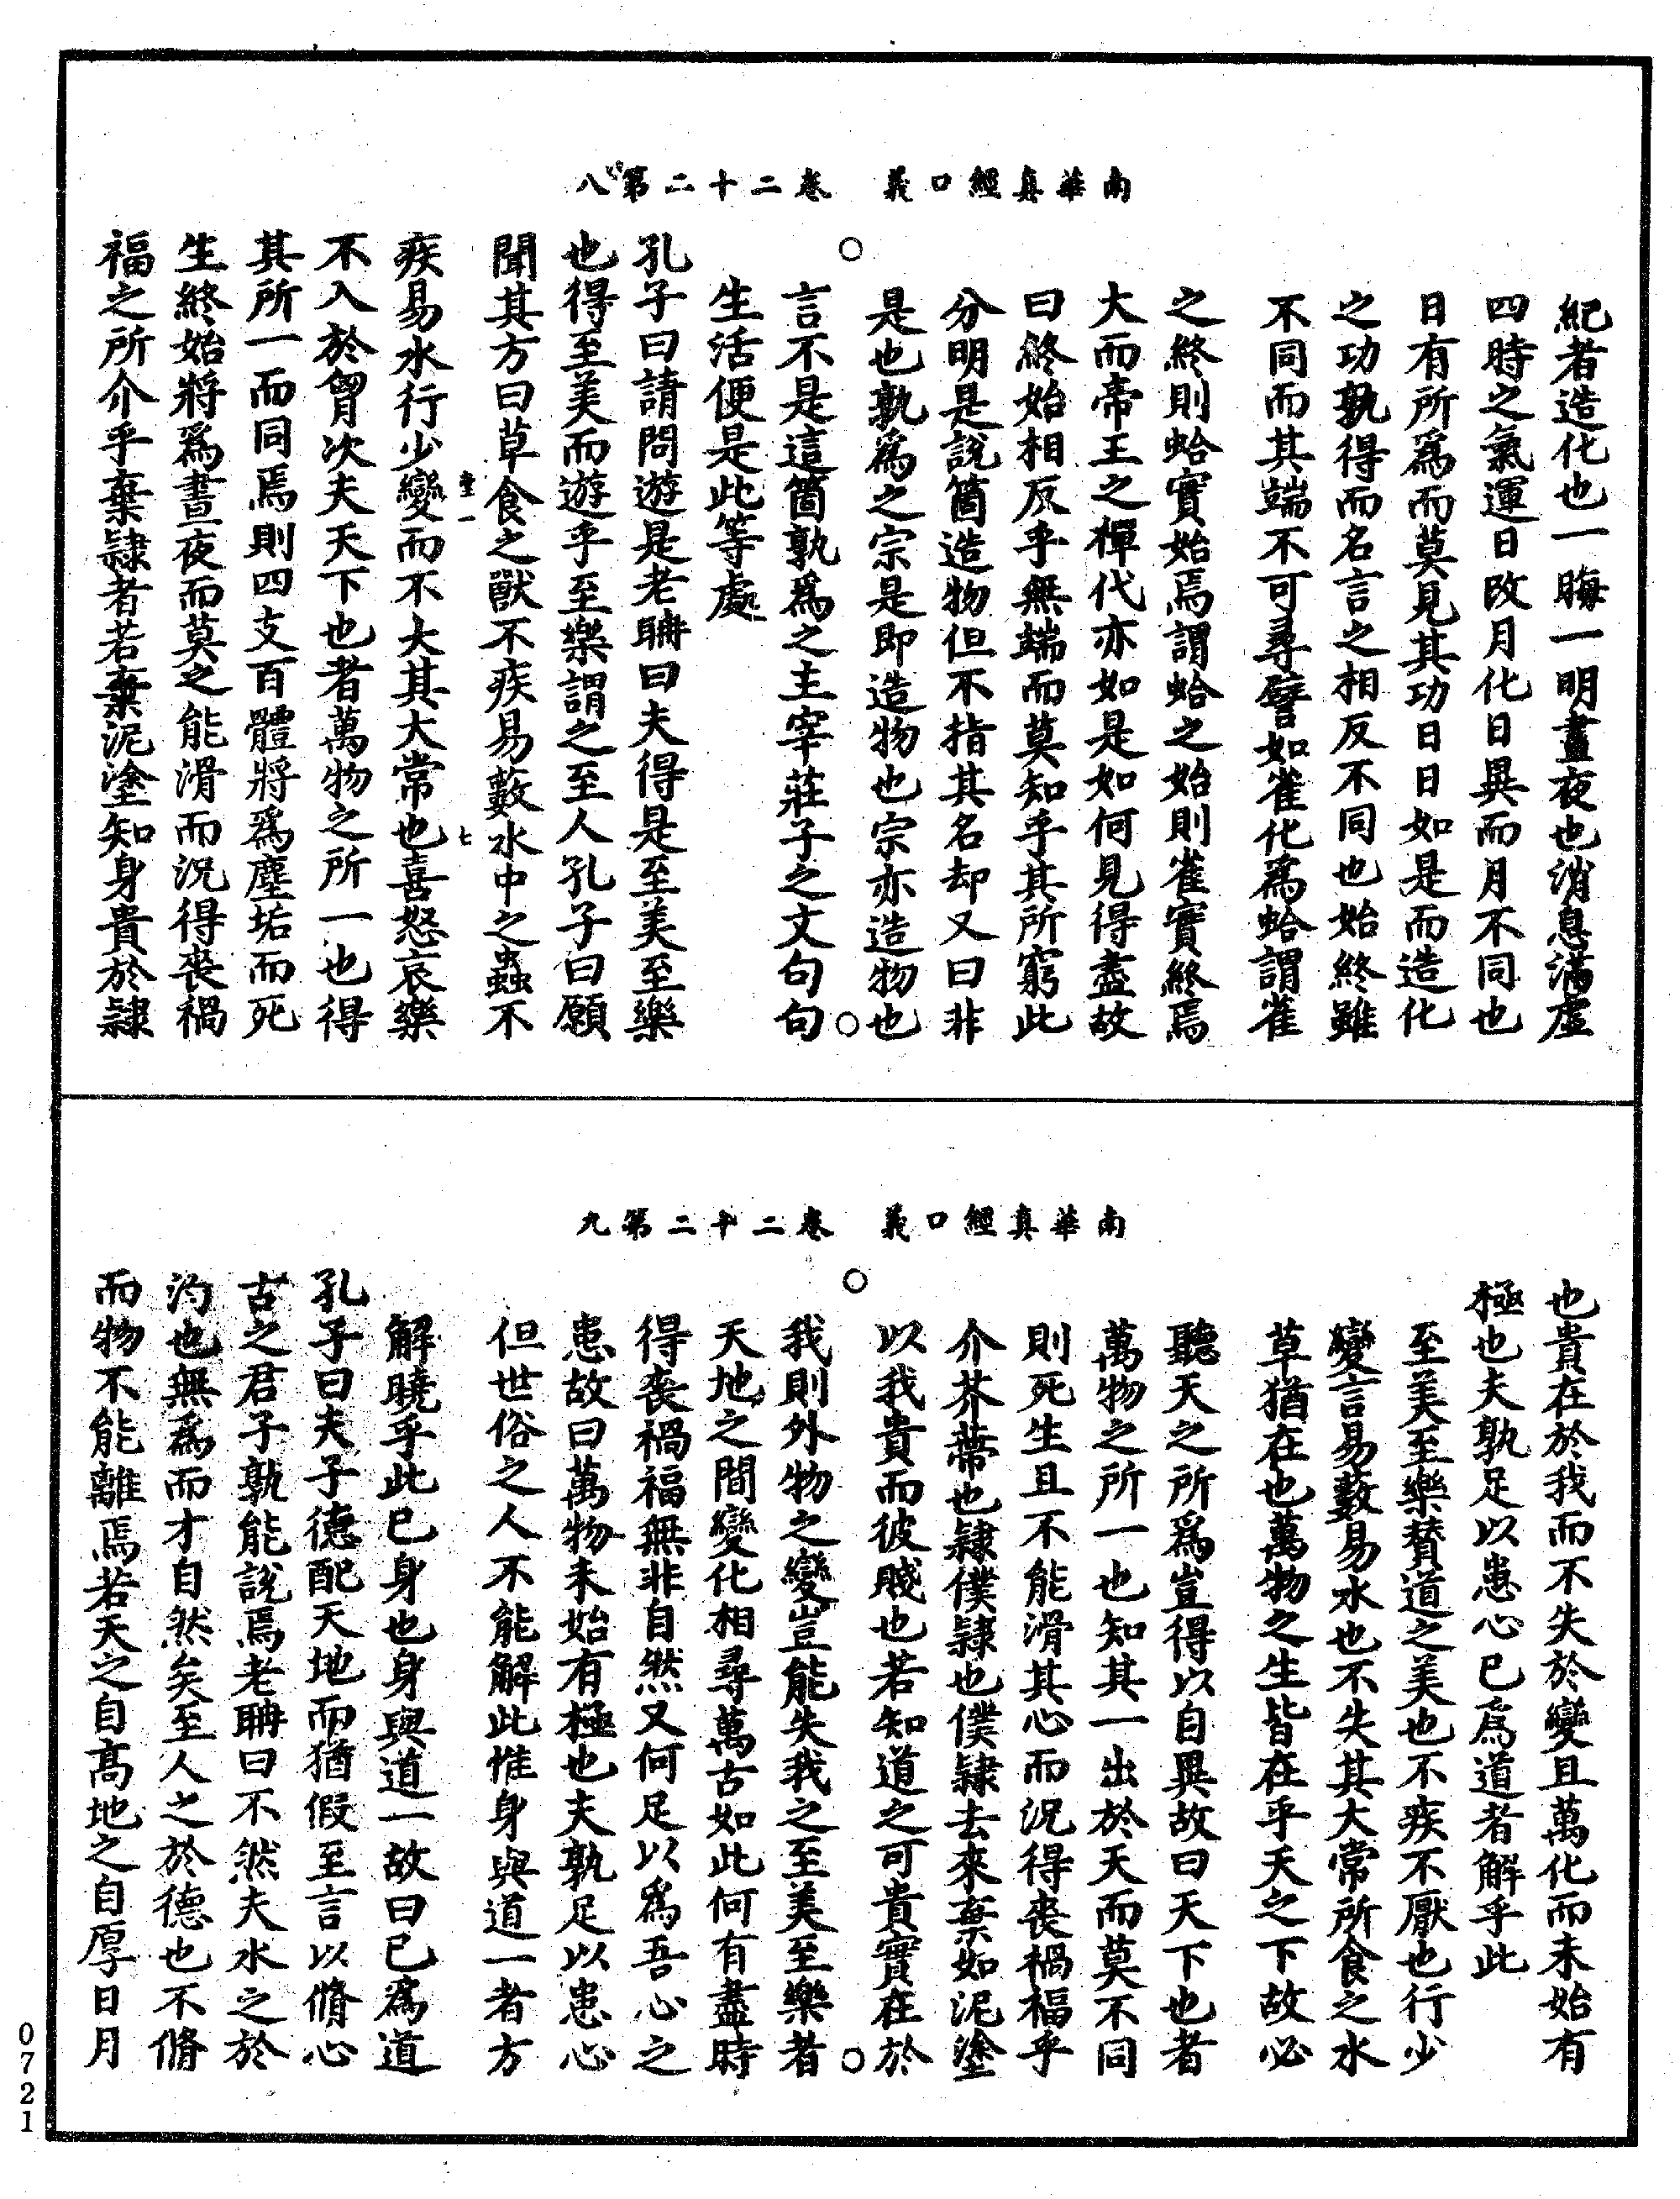 南華真經口義　卷二十二第八
紀者造化也一晦一明晝夜也消息滿虛
四時之氣運日改月化日異而月不同也
日有所為而莫見其功日日如是而造化
之功孰得而名言之相反不同也始終雖
不同而其端不可尋譬如雀化為蛤謂雀
之終則蛤實始焉謂蛤之始則雀實終焉
大而帝王之禪代亦如是如何見得盡故
曰終始相反乎無端而莫知乎其所窮此
分明是說箇造物但不指其名却又曰非
是也孰為之宗是即造物也宗亦造物也
言不是這箇孰為之主宰莊子之文句句
生活便是此等處
孔子曰請問遊是老聃曰夫得是至美至樂
也得至美而遊乎至樂謂之至人孔子曰願
聞其方曰草食之獸不疾易藪水中之蟲不
疾易水行少變而不大其大常也喜怒哀樂
不入於胷次夫天下也者萬物之所一也得
其所一而同焉則四支百體將為塵垢而死
生終始將為晝夜而莫之能滑而況得喪禍
福之所介乎棄隸者若棄泥塗知身貴於隸
南華真經口義　卷二十二第九
也貴在於我而不失於變且萬化而未始有
極也夫孰足以患心已為道者解乎此
至美至樂贊道之美也不疾不厭也行少
變言易藪易水也不失其大常所食之水
草猶在也萬物之生皆在乎天之下故必
聽天之所為豈得以自異故曰天下也者
萬物之所一也知其一出於天而莫不同
則死生且不能滑其心而況得喪禍福乎
介芥蔕也隸僕隸也僕隸去來棄如泥塗
以我貴而彼賤也若知道之可貴實在於
我則外物之變豈能失我之至美至樂者
天地之間變化相尋萬古如此何有盡時
得喪禍福無非自然又何足以為吾心之
患故曰萬物未始有極也夫孰足以患心
但世俗之人不能解此惟身與道一者方
解曉乎此已身也身與道一故曰已為道
孔子曰夫子德配天地而猶假至言以脩心
古之君子孰能說焉老聃曰不然夫水之於
汋也無為而才自然矣至人之於德也不脩
而物不能離焉若天之自高地之自厚日月
0721